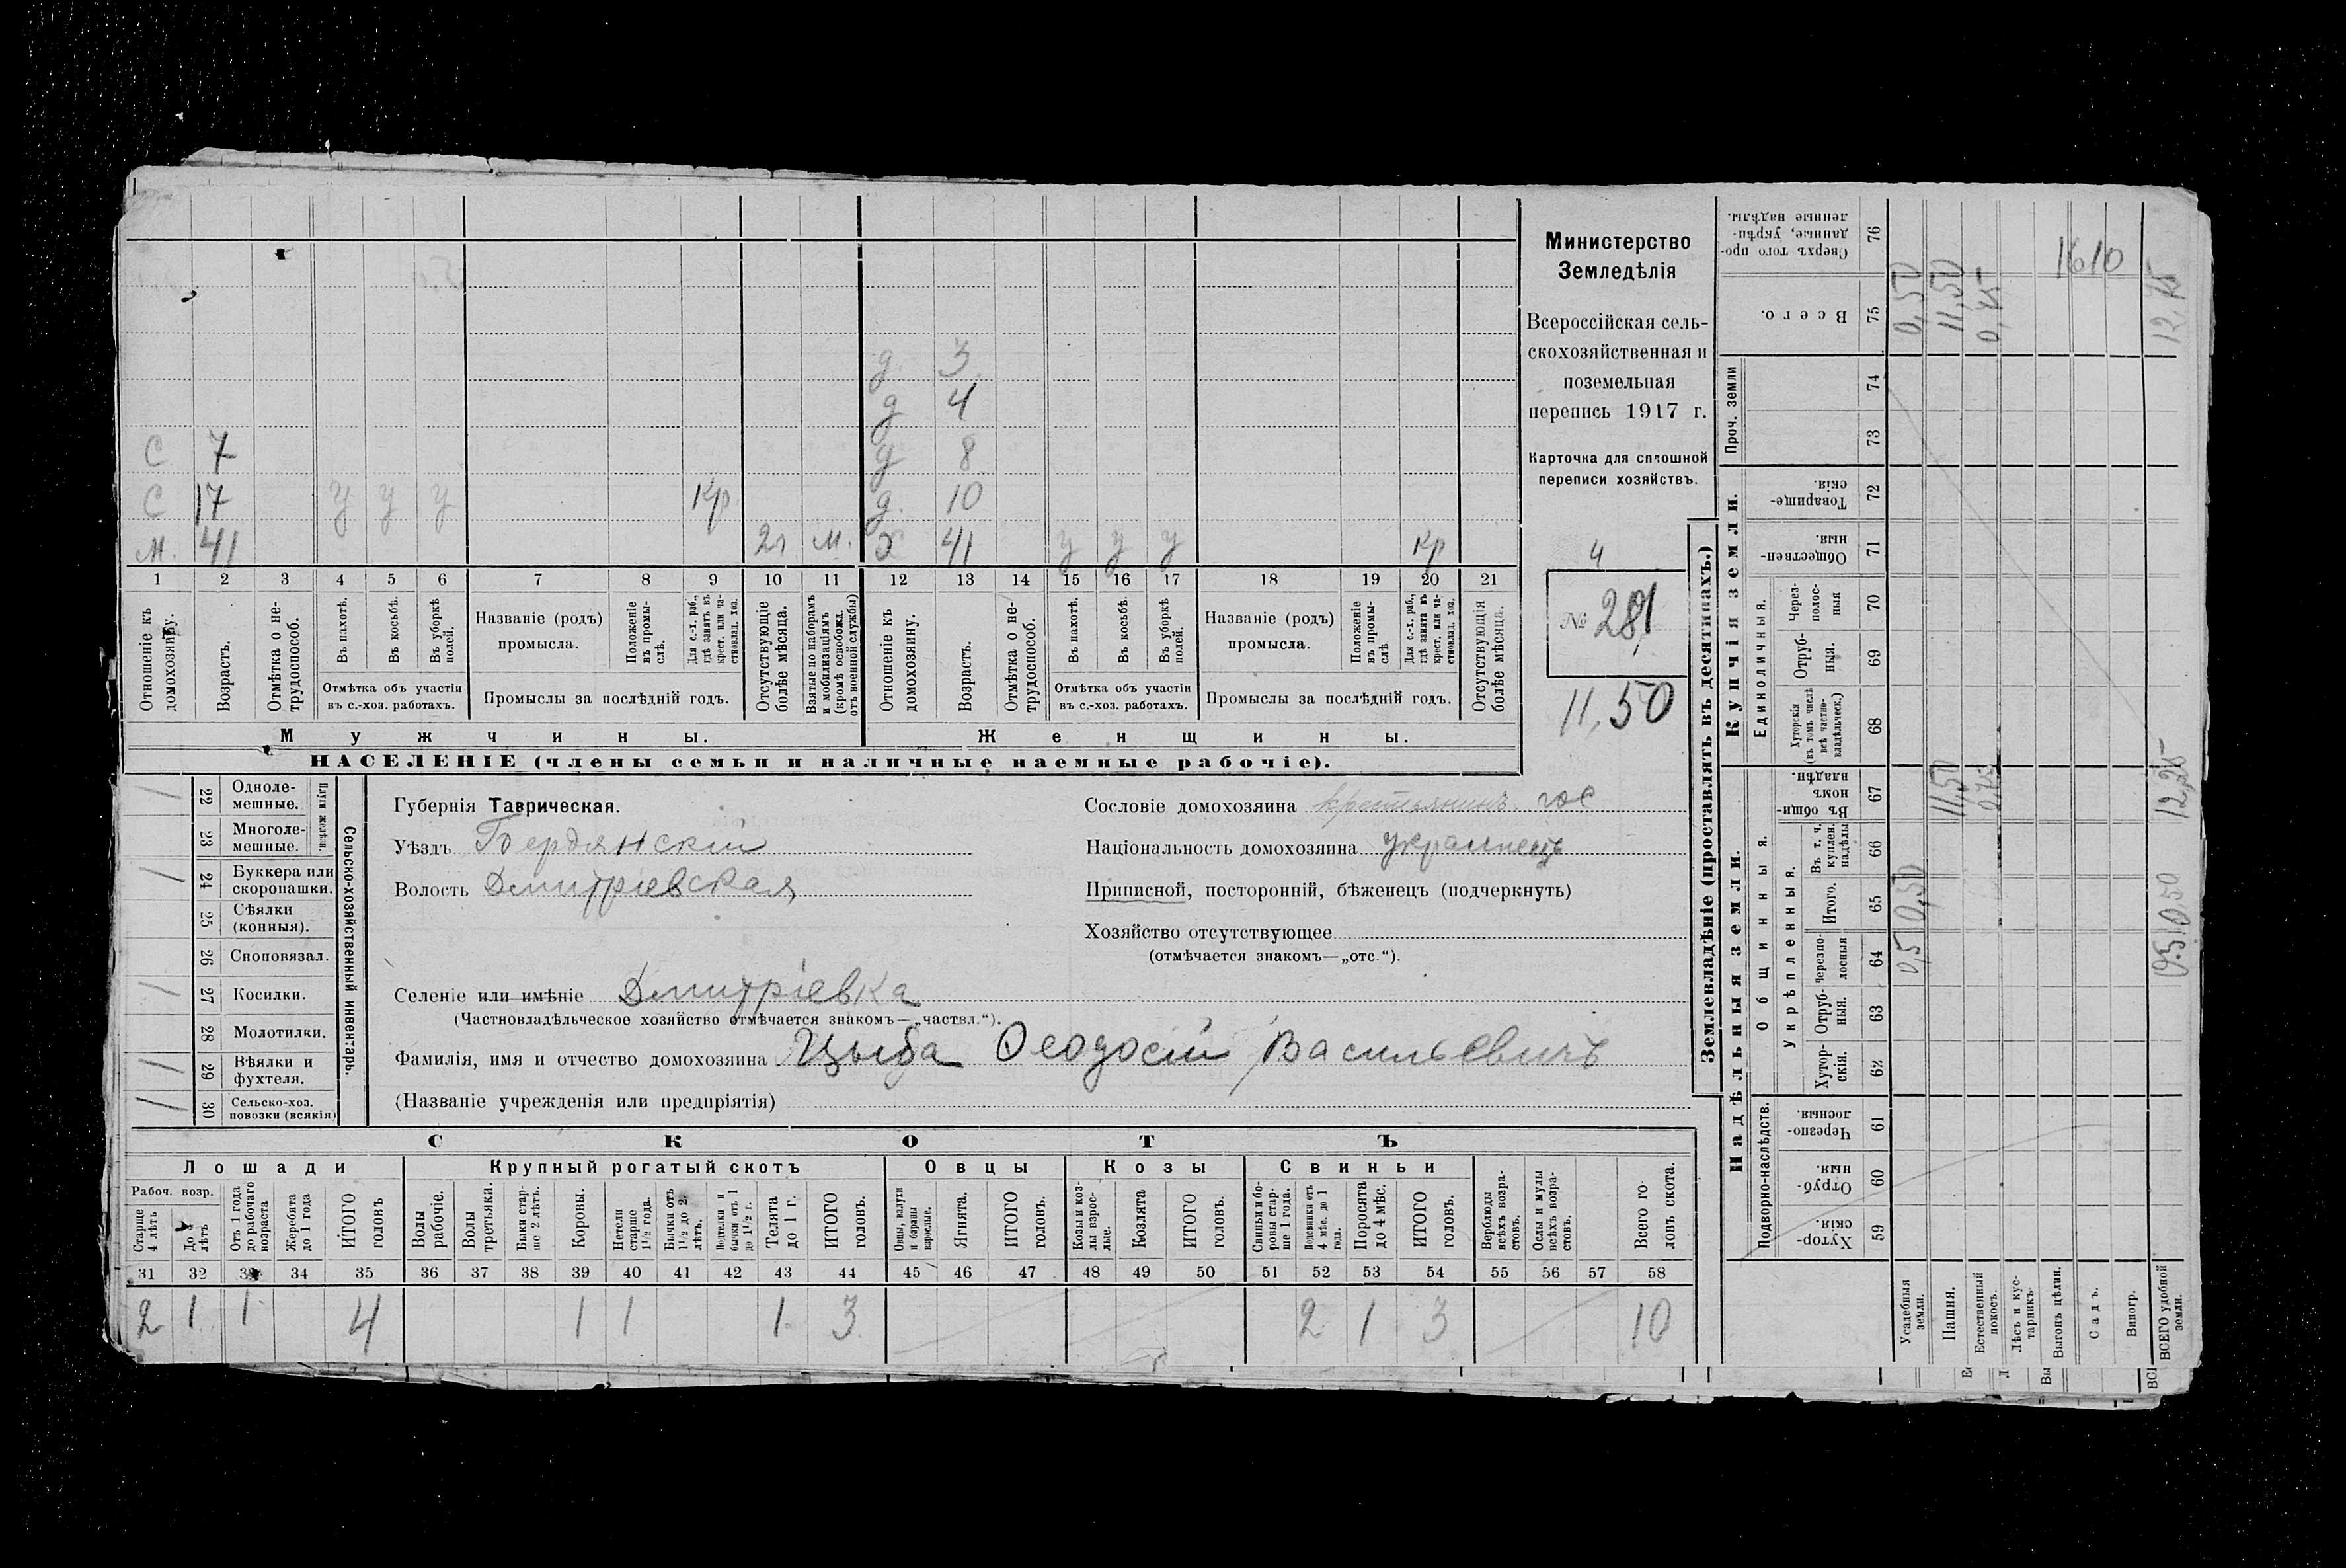 Министерство
Земледѣлія
Всероссійская сель-
скохозяйственная и
поземельная
перепись 1917 г.
Карточка для сплошной
переписи хозяйствъ.
4
№ 281
11,50
д 3
д 4
С 7 д 8
С 17 у у у кр д. 10
м. 41 2г м. х 41 у у у кр
1 2 3 4 5 6 7 8 9 10 11 12 13 14 15 16 17 18 19 20 21
Отношеніе къ домохозяину.
Возрастъ.
Отмѣтка о не-трудоспособ.
Въ пахотѣ.
Въ косьбѣ.
Въ уборкѣ полей.
Отмѣтка объ участіи
въ с.-хоз. работахъ.
Названіе (родъ)
промысла.
Положеніе въ промы-слѣ.
Для с.-х. раб., гдѣ занятъ въ крест. или ча-стновлад. хоз.
Промыслы за послѣдній годъ.
Отсутствующіе болѣе мѣсяца.
Взятые по наборамъ и мобилизаціямъ (кромѣ освобожд. отъ военной службы)
Отношеніе къ домохозяину.
Возрастъ.
Отмѣтка о не-трудоспособ.
Въ пахотѣ.
Въ косьбѣ.
Въ уборкѣ полей.
Отмѣтка объ участіи
въ с.-хоз. работахъ.
Названіе (родъ)
промысла.
Положеніе въ промы-слѣ
Для с.-х. раб., гдѣ занята въ крест. или ча-стновлад. хоз.
Промыслы за послѣдній годъ.
Отсутствующія болѣе мѣсяца.
Мужчины. Женщины.
НАСЕЛЕНІЕ (члены семьи и наличные наемные рабочіе).
Сельско-хозяйственный инвентарь.
Плуги желѣзн.
1 22 Одноле-мешные.
23 Многоле-мешные.
1 24 Буккера или скоропашки.
25 Сѣялки (конныя).
26 Сноповязал.
1 27 Косилки.
28 Молотилки.
1 29 Вѣялки и фухтеля.
1 30 Сельско-хоз. повозки (всякія)
Губернія Таврическая.
Уѣздъ Бердянскій
Волость Дмитріевская
Сословіе домохозяина крестьянинъ гос
Національность домохозяина украинецъ
Приписной, посторонній, бѣженецъ (подчеркнуть)
Хозяйство отсутствующее
(отмѣчается знакомъ—„отс.“).
Селеніе или имѣніе Дмитріевка
(Частновладѣльческое хозяйство отмѣчается знакомъ—„частвл.“).
Фамилія, имя и отчество домохозяина Цыба Ѳеодосій Васильевичъ
(Названіе учрежденія или предпріятія)
СКОТЪ
Лошади Крупный рогатый скотъ Овцы Козы Свиньи
Рабоч. возр.
Старше 4 лѣтъ
До 4 лѣтъ
Отъ 1 года до рабочаго возраста
Жеребята до 1 года
ИТОГО головъ
Волы рабочіе.
Волы третьяки.
Быки стар-ше 2 лѣтъ.
Коровы.
Нетели старше 1½ года.
Бычки отъ 1½ до 2 лѣтъ.
Подтелки и бычки отъ 1 до 1½ г.
Телята до 1 г.
ИТОГО головъ.
Овцы, валухи и бараны взрослые.
Ягнята.
ИТОГО головъ.
Козы и коз-лы взрос-лые.
Козлята
ИТОГО головъ.
Свиньи и бо-ровы стар-ше 1 года.
Подсвинки отъ 4 мѣс. до 1 года.
Поросята до 4 мѣс.
ИТОГО головъ.
Верблюды всѣхъ возра-стовъ.
Ослы и мулы всѣхъ возра-стовъ.
Всего го-ловъ скота.
31 32 33 34 35 36 37 38 39 40 41 42 43 44 45 46 47 48 49 50 51 52 53 54 55 56 57 58
2 1 1 4 1 1 1 3 2 1 3 10
Землевладѣніе (проставлять въ десятинахъ.)
Надѣльныя земли. Купчія земли.
Проч. земли
Подворно-наслѣдств.
Общинныя.
Укрѣпленныя.
Единоличныя.
Хутор-скія. 59
Отруб-ныя. 60
Черезпо-лосныя. 61
Хутор-скія. 62
Отруб-ныя. 63
Черезпо-лосныя 64
Итого. 65
Въ т. ч. куплен. надѣлы 66
Въ общин-номъ владѣн. 67
Хуторскія (въ томъ числѣ всѣ частно-владѣльческ.) 68
Отруб-ныя. 69
Через-полос-ныя 70
Обществен-ныя. 71
Товарище-скія. 72
73
74
Всего. 75
Сверхъ того про-данные, укрѣп-ленные надѣлы. 76
Усадебныя земли. 0,5 0,50 0,50
Пашня. 11,50 11,50
Естественный покосъ.
Лѣсъ и кус-тарникъ.
Выгонъ цѣлин.
Садъ.
Виногр.
ВСЕГО удобной земли. 0,5 0,50 12,25 12,75
1610